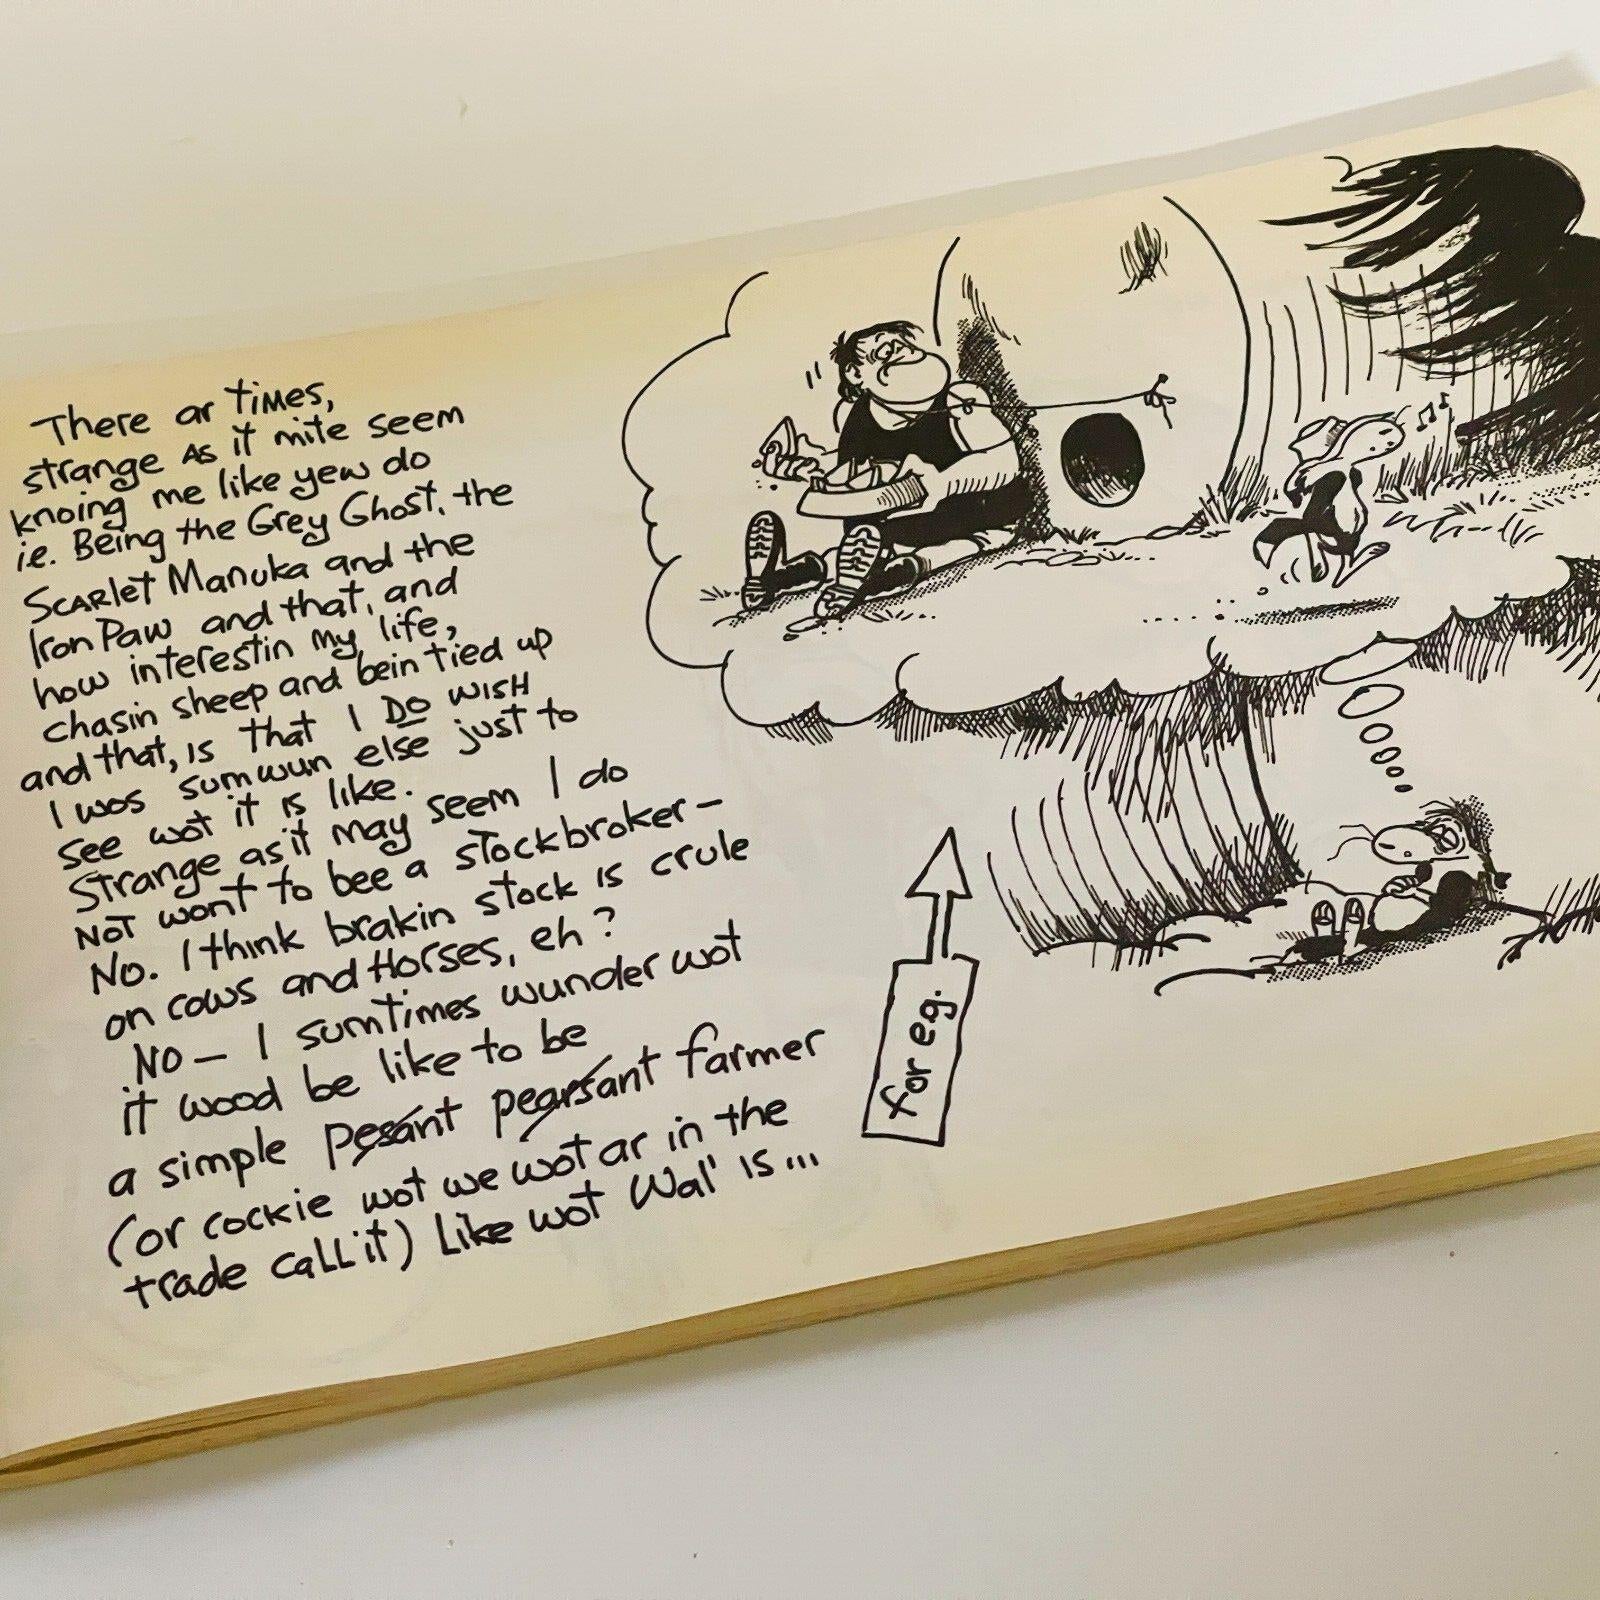 There ar times,
strange as it mite seem
knoing me like yew do
ie. Being the Grey Ghost, the
Scarlet Manuka and the
Iron Paw and that, and
how interestin my life,
chasin sheep and bein tied up
and that, is that I DO WISH
I wos sumwun else just to
see wot it is like.
Strange as it may seem I do
NOT wont to bee a stockbroker –
No. I think brakin stock is crule
on cows and Horses, eh?
NO – I sumtimes wunder wot
it wood be like to be
a simple pesant pearsant farmer
(or cockie wot we wot ar in the
trade call it) Like wot Wal' is...
for eg.